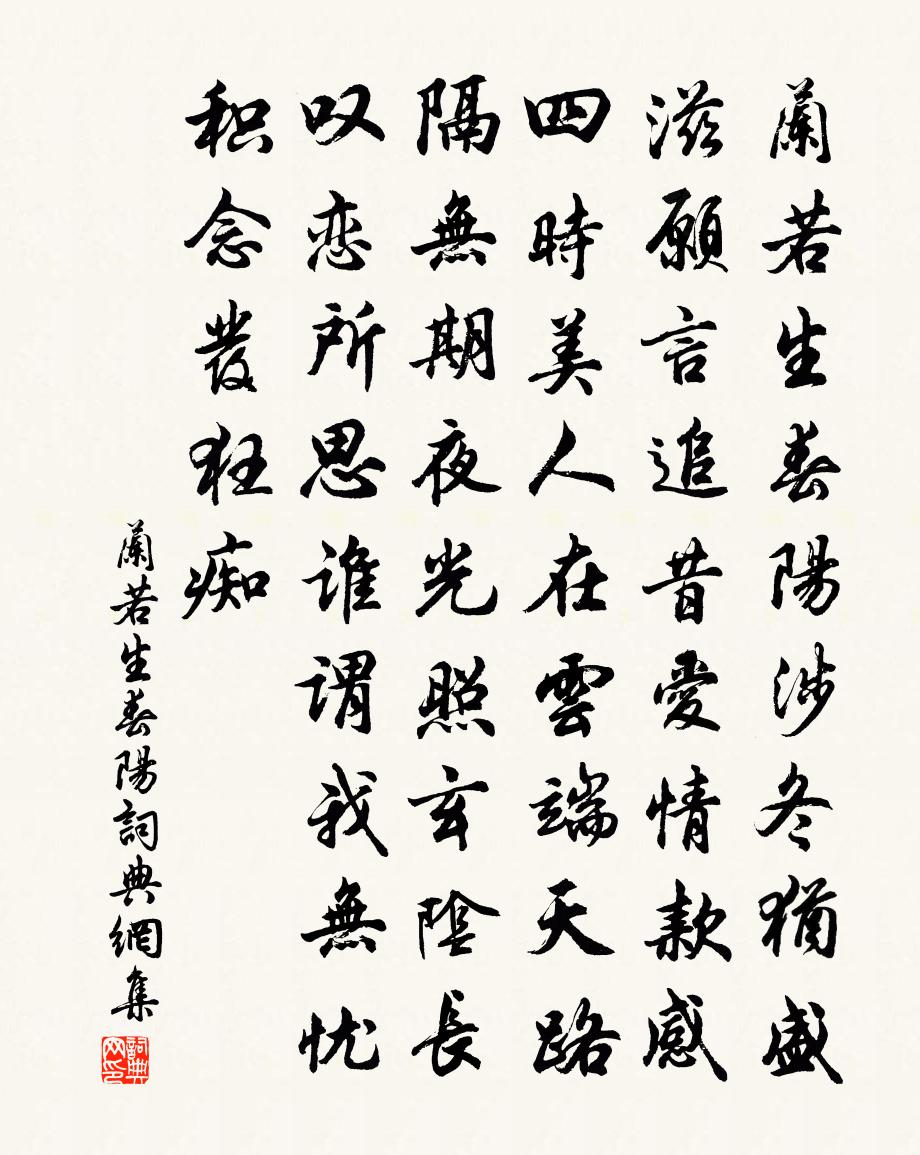 蘭若生春陽涉冬猶盛
滋願言追昔愛情款感
四時美人在雲端天路
隔無期夜光照玄陰長
叹恋所思谁谓我無忧
积念發狂痴
蘭若生春陽詞典網集
詞典
网印